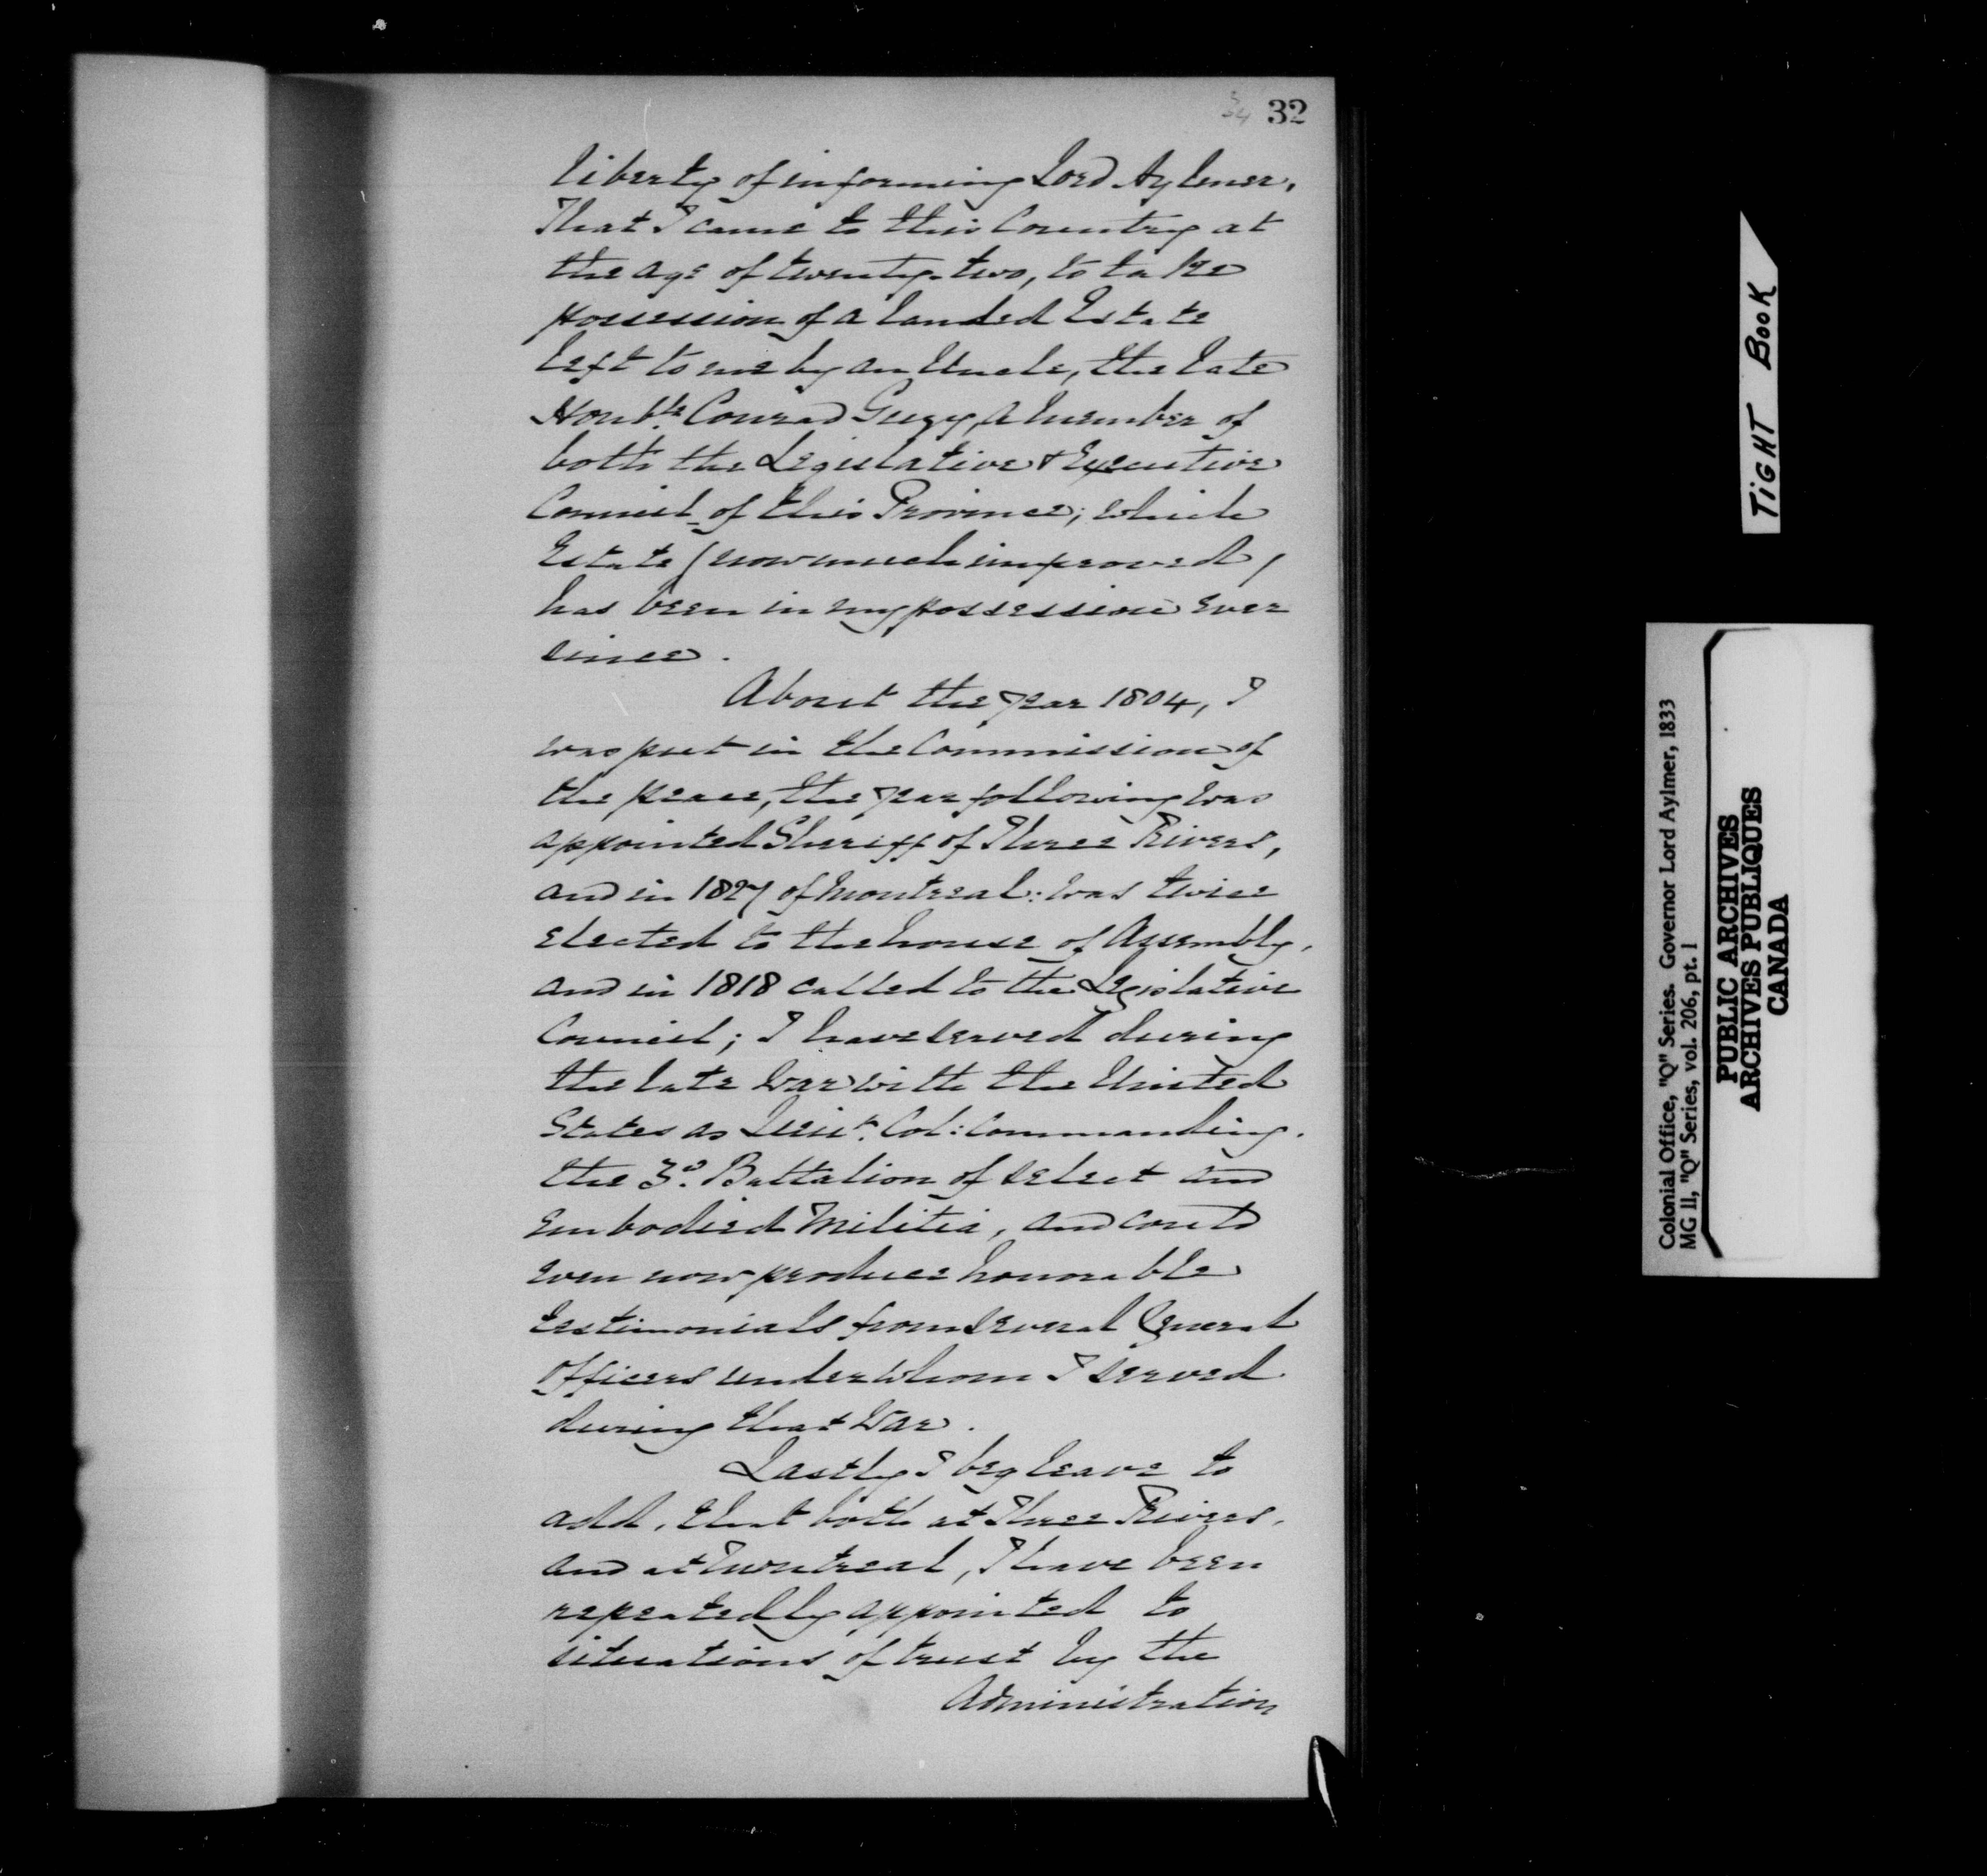 32
liberty of informing Lord Aylmer,
That I came to this Country at
the age of twenty-two, to take
possession of a landed Estate
left to me by an Uncle, the late
Honble. Conrad Gugy, a member of
both the Legislative & Executive
Council of this Province; which
Estate (now much improved)
has been in my possession ever
since.
About the year 1804, I
was put in the Commission of
the peace, the year following was
appointed Sheriff of Three Rivers,
and in 1827 of Montreal: was twice
elected to the house of Assembly,
and in 1818 called to the Legislative
Council; I have served during
the late War with the United
States as Lieut. Col: Commanding.
the 3d. Battalion of select and
Embodied Militia, and could
even now produce honorable
testimonials from several General
Officers under whom I served
during that War.
Lastly I beg leave to
add, that both at Three Rivers,
and at Montreal, I have been
repeatedly appointed to
situations of trust by the
Administration
TIGHT BOOK
Colonial Office, "Q" Series. Governor Lord Aylmer, 1833
MG 11, "Q" Series, vol. 206, pt. 1
PUBLIC ARCHIVES
ARCHIVES PUBLIQUES
CANADA